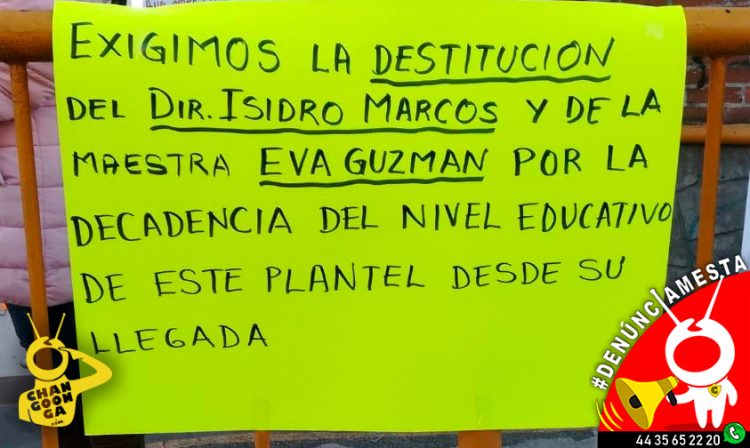 EXIGIMOS LA DESTITUCION
DEL DIR. ISIDRO MARCOS Y DE LA
MAESTRA EVA GUZMAN POR LA
DECADENCIA DEL NIVEL EDUCATIVO
DE ESTE PLANTEL DESDE SU
LLEGADA
CHAN
GOON
GA
.COM
#DENÚNCIAMESTA
C
44 35 65 22 20